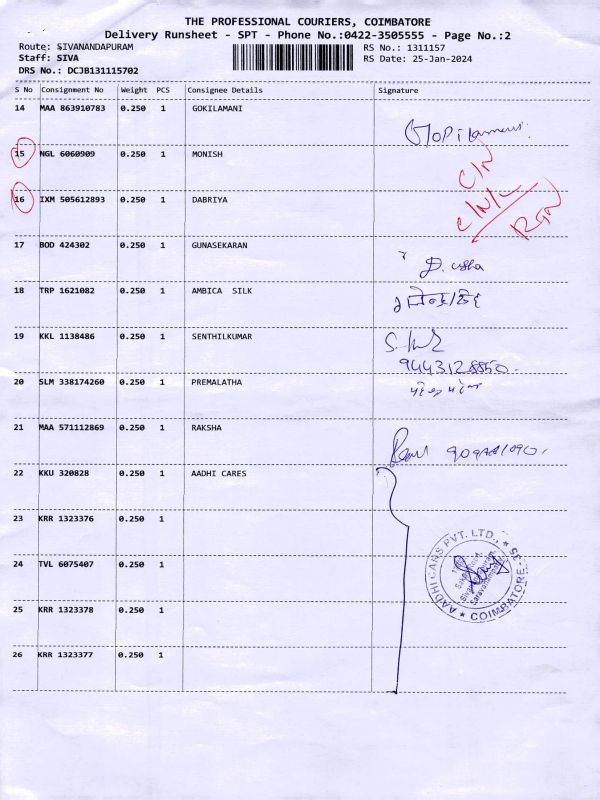 THE PROFESSIONAL COURIERS, COIMBATORE
Delivery Runsheet - SPT - Phone No.:0422-3505555 - Page No.:2
Route: SIVANANDAPURAM
RS No.: 1311157
Staff: SIVA
RS Date: 25-Jan-2024
DRS No.: DCJB131115702
S No Consignment No Weight PCS Consignee Details Signature
14 MAA 863910783 0.250 1 GOKILAMANI
15 NGL 6060909 0.250 1 MONISH C/N
16 IXM 505612893 0.250 1 DABRIYA C/N/L
17 BOD 424302 0.250 1 GUNASEKARAN D. usha
18 TRP 1621082 0.250 1 AMBICA SILK
19 KKL 1138486 0.250 1 SENTHILKUMAR
9443128850
20 SLM 338174260 0.250 1 PREMALATHA
21 MAA 571112869 0.250 1 RAKSHA
22 KKU 320828 0.250 1 AADHI CARES
23 KRR 1323376 0.250 1
24 TVL 6075407 0.250 1
25 KRR 1323378 0.250 1
26 KRR 1323377 0.250 1
AADHI CARS PVT. LTD., * COIMBATORE - 35 *